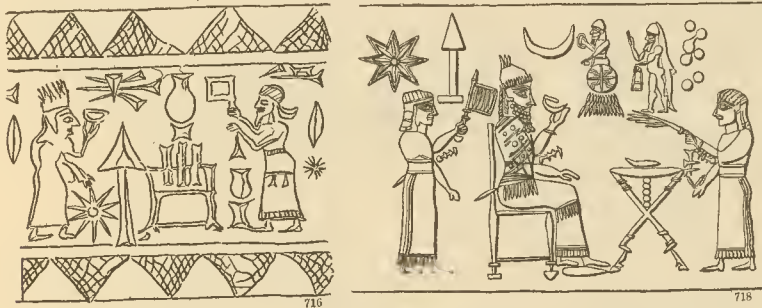 716
718